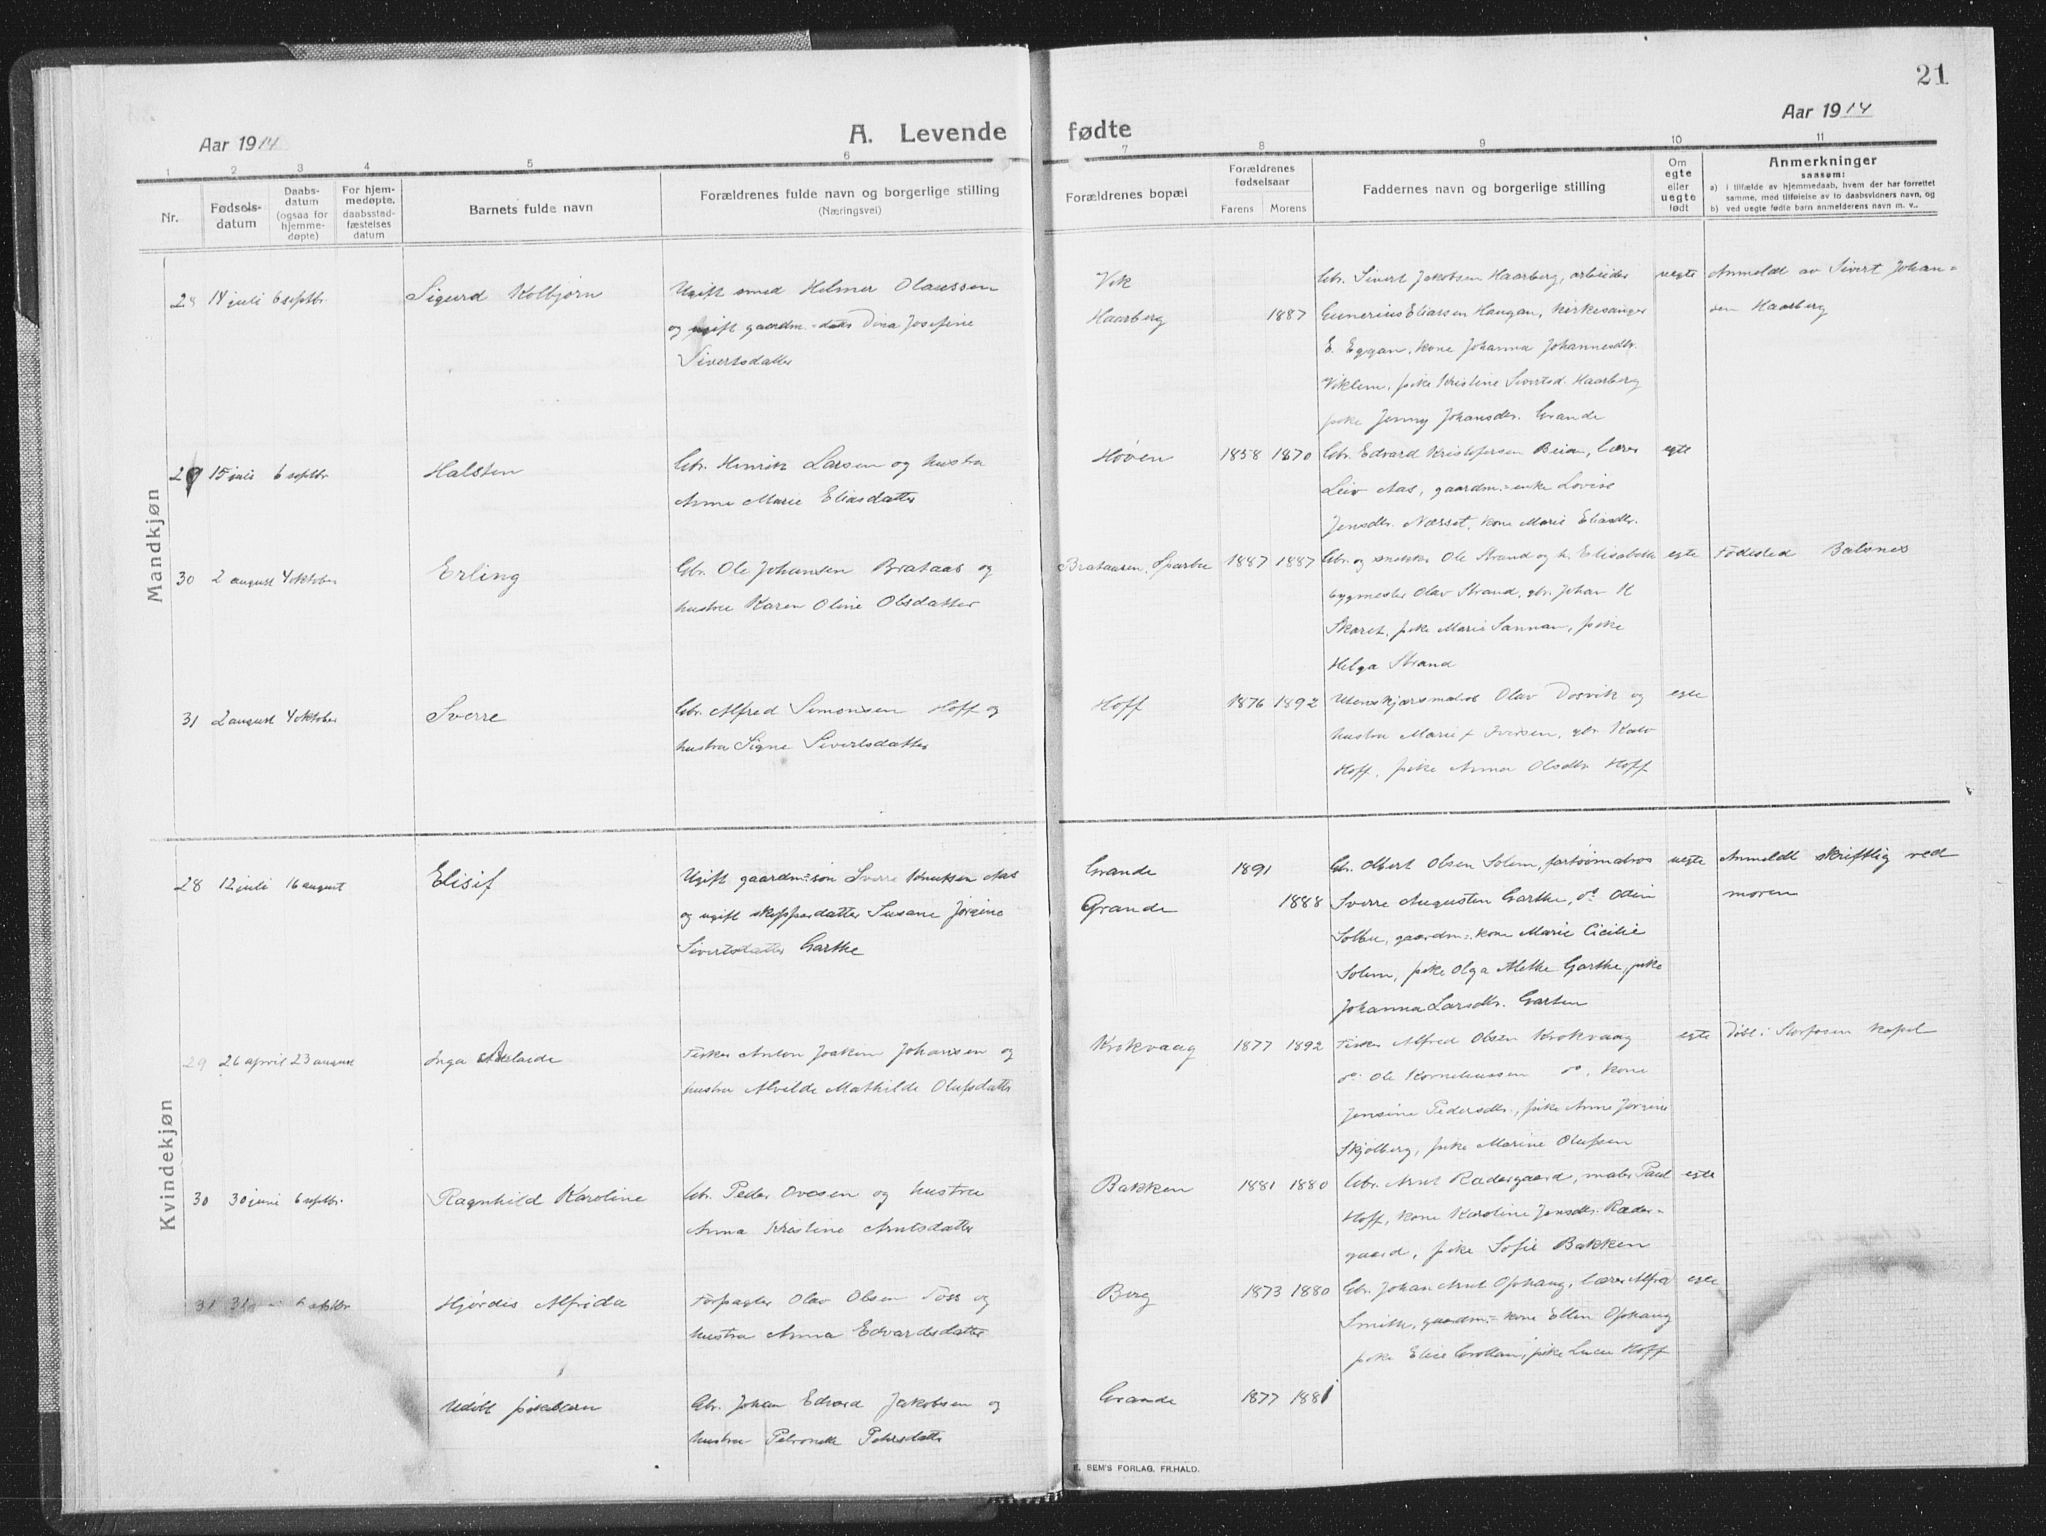 21
Aar 1914
A. Levende fødte
Aar 1914
1 2 3 4 5 6 7 8 9 10 11
Nr.
Fødsels-
datum
Daabs-
datum
(ogsaa for
hjemme-
døpte)
For hjem-
medøpte.
daabsstad-
fæstelses
datum
Barnets fulde navn
Forældrenes fulde navn og borgerlige stilling
(Næringsvei)
Forældrenes bopæl
Forældrenes
fødselsaar
Farens Morens
Faddernes navn og borgerlige stilling
Om
egte
eller
uegte
født
Anmerkninger
saasom:
a) i tilfælde av hjemmedaab, hvem der har forrettet
samme, med tilføielse av to daabsvidners navn, og
b) ved uegte fødte barn anmelderens navn m. v..
Mandkjøn
28 14 juli 6 septbr. Sigurd Kolbjørn
Ugift smed Helmer Olaussen
og ugift gaardm.-datt Dina Josefine
Sivertsdatter
Vik
Haarberg 1887
Gbr. Sivert Jakobsen Haarberg, arbeider
Gunerius Eliassen Haugan, kirkesanger
E. Eggan, kone Johanna Johannesdtr.
Viklem, pike Kristine Sivertsd. Haarberg
pike Jenny Johansdtr. Grande
uegte
Anmeldt av Sivert Johan-
sen Haarberg
29 15 juli 6 septbr. Halsten
Gbr. Henrik Larsen og hustru
Anne Marie Eliasdatter
Høven 1858 1870
Gbr. Edvard Kristofersen Beian, lærer
Leiv Aas, gaardm.-enke Lovise
Jensdtr. Næsset, kone Marie Eliasdtr.
egte
30 2 august 4 oktober Erling
Gbr. Ole Johansen Brataas og
hustru Karen Oline Olsdatter
Brataasen, Sparbu 1887 1887
Gbr. og snekker Ole Strand og h. Elisabeth
bygmester Olav Strand, gbr. Johan H
Skaret, pike Marie Sannan, pike
Helga Strand
egte
Fødested Balsnes
31 2 august 4 oktober Sverre
Gbr. Alfred Simonsen Hoff og
hustru Signe Sivertsdatter
Hoff 1876 1892
Utenskjærsmatros Olav Dosvik og
hustru Marie f. Iversen, gbr.
Hoff, pike Anna Olsdtr. Hoff
egte
Kvindekjøn
28 12 juli 16 august Elisif
Ugift gaardm:søn Sverre Knutsen Aas
og ugift skipperdatter Susane Jørgine
Sivertsdatter Garthe
Grande 1891
Grande 1888
Gbr. Albert Olsen Solem, fartøimatros
Sverre Augusten Garthe, do Odin
gaardm:kone Marie Cicilie
Solem, pike Olga Methe Garthe, pike
Johanna Larsdtr. Garten
uegte
Anmeldt skriftlig ved
moren
29 26 april 23 august Inga Adelaide
Fisker Anton Joakim Johansen og
hustru Alvilde Mathilde Olufsdatter
Krokvaag 1877 1892
Fisker Alfred Olsen Krokvaag
do Ole Korneliussen do, kone
Jensine Pedersdtr., pike Anne Jørgine
Skjølberg, pike Marine Olufsen
egte
Døbt i Storfosen kapel
30 30 juni 6 septbr. Ragnhild Karoline
Gbr. Peder Ovesen og hustru
Anna Kristine Arntsdatter
Bakken 1881 1880
Gbr. Arnt Rødergaard, maler Paul
Hoff, kone Karoline Jensdtr. Røder-
gaard, pike Sofie Bakken
egte
31 31 Hjørdis Alfrida
Forpagter Olav Olsen Foss og
hustru Anna Edvardsdatter
Borg 1873 1880
Gbr. Johan Arnt Ophaug, lærer Alfred
Smith, gaardm:-kone Ellen Ophaug
pike Elise pike Hoff
egte
Udøbt pikebarn
Gbr. Johan Edvard Jakobsen og
hustru Petronelle Petersdatter
Grande 1877 1881
E. SEM'S FORLAG. FR.HALD.